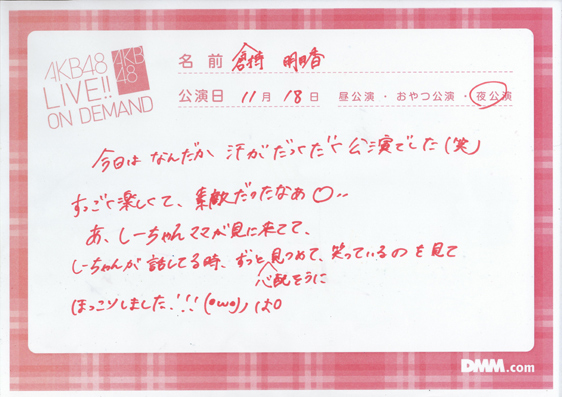 AKB48
LIVE!!
ON DEMAND
AKB
48
名前 倉持 明日香
公演日 11月18日 昼公演・おやつ公演・夜公演
今日は なんだか 汗がだっくだく公演でした(笑)
すっごく楽しくて、素敵だったなあ〇..
あ、しーちゃんママが見に来てて、
しーちゃんが話してる時、ずっと見つめて、笑っているのを見て
心配そうに
ほっこりしました!!!(ow
DMM.com